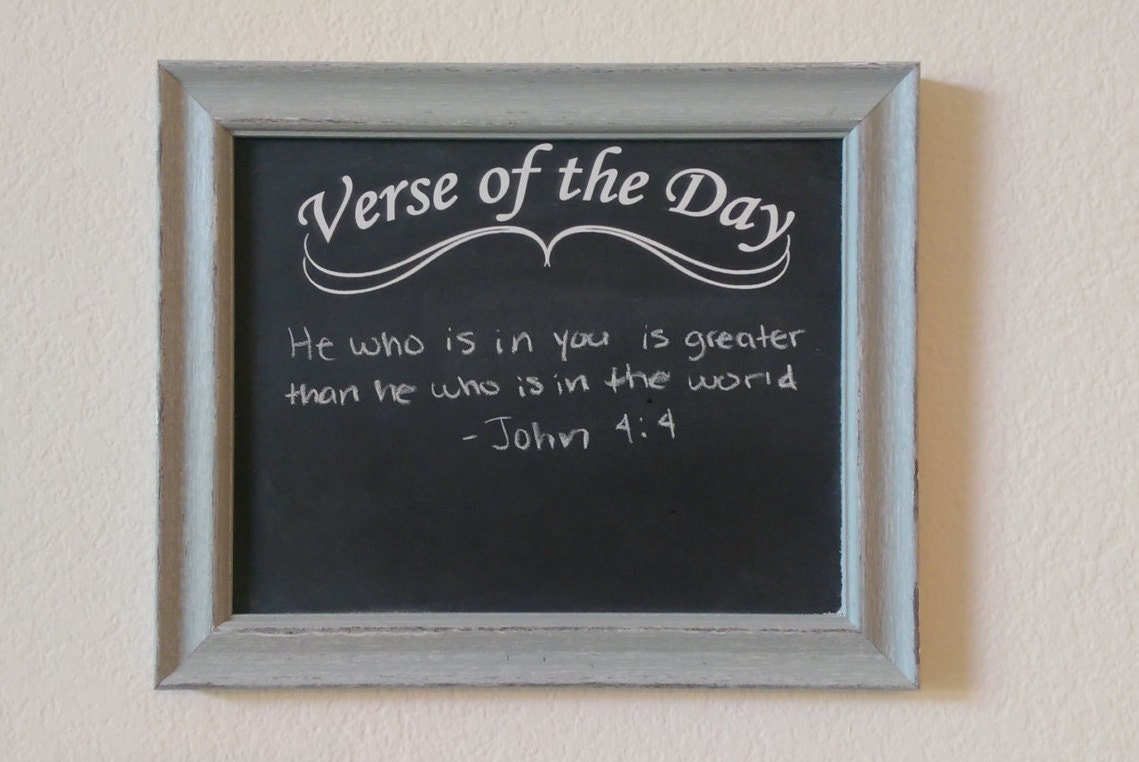 Verse of the Day
He who is in you is greater
than he who is in the world
- John 4:4